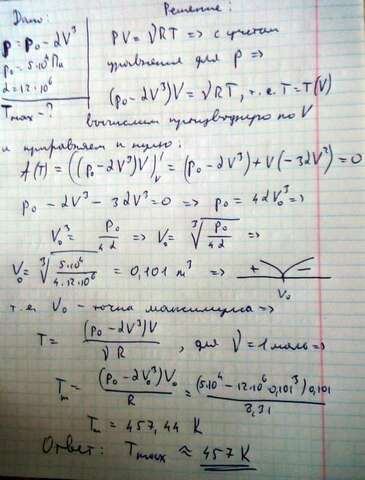 Дано: Решение:
p = p₀ - αV³ PV = νRT => с учетом
p₀ = 5·10⁴ Па уравнения для p =>
α = 12·10⁶ (p₀ - αV³)V = νRT, т.е. T = T(V)
Tmax - ? вычислим производную по V
и приравняем к нулю:
A(T) = ((p₀ - αV³)V)'ᵥ = (p₀ - αV³) + V(-3αV²) = 0
p₀ - αV³ - 3αV³ = 0 => p₀ = 4αV₀³ =>
V₀³ = p₀/4α => V₀ = ∛(p₀/4α) =>
V₀ = ∛(5·10⁴/4·12·10⁶) = 0,101 m³ => + - V₀
т.е. V₀ - точка максимума =>
T = (p₀ - αV³)V / νR, для ν = 1 моль =>
Tm = (p₀ - αV₀³)V₀ / R = (5·10⁴ - 12·10⁶ 0,101³) 0,101 / 8,31
Tm = 457,44 K
Ответ: Tmax ≈ 457 K